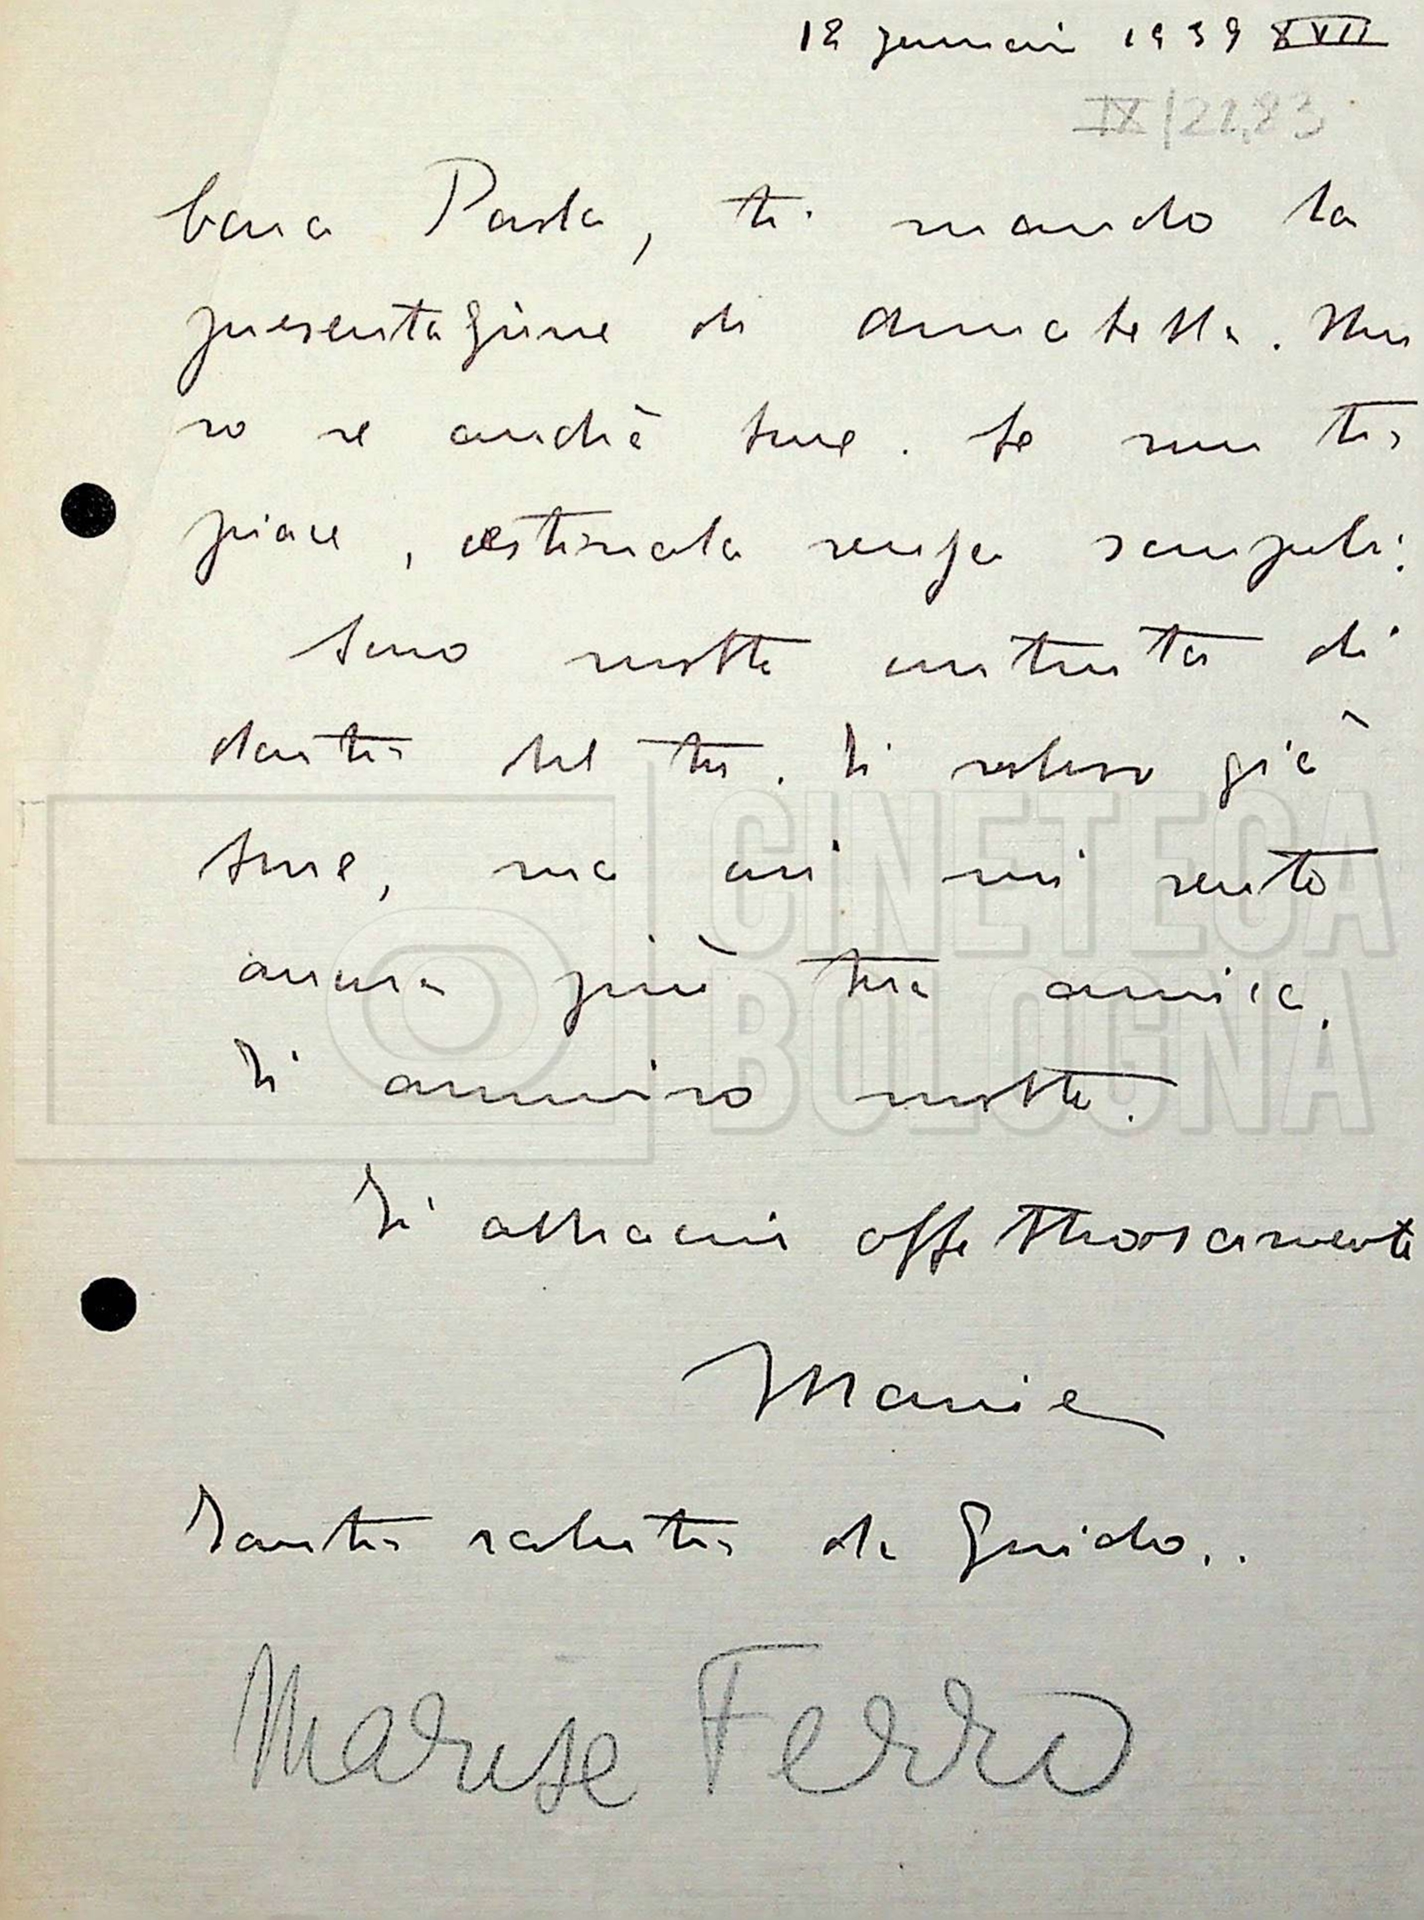 12 gennaio 1939 XVII
IX/21,83
Cara Paola, ti mando la
presentazione di Donatella. Non
so se andrà bene. Se non ti
piace, cestinala senza scrupoli.
Sono molto contenta di
darti del tu. Ti volevo già
bene, ma così mi sento
ancora più tua amica.
Ti ammiro molto.
Ti abbraccio affettuosamente
Marise
Tanti saluti da Guido..
Marise Ferro
CINETECA
BOLOGNA